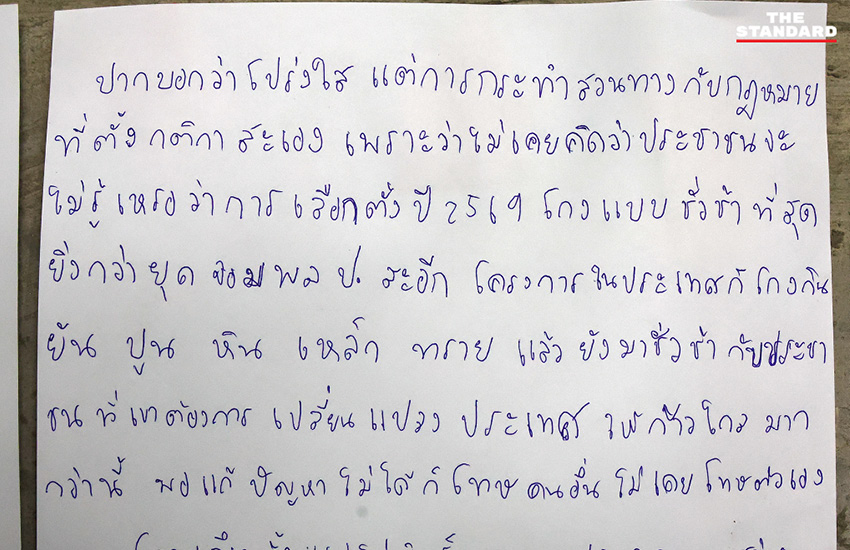 THE
STANDARD
ปากบอกว่าโปร่งใส แต่การกระทำสวนทางกับกฎหมาย
ที่ตั้งกติกาสะเอง เพราะว่าไม่เคยคิดว่าประชาชนจะ
ไม่รู้เหรอว่าการเลือกตั้งปี 2569 โกงแบบชั่วช้าที่สุด
ยิ่งกว่ายุคจอมพล ป. สะอีก โครงการในประเทศก็โกงกัน
ยัน ปูน หิน เหล็ก ทราย แล้วยังมาชั่วช้ากับประชา
ชนที่เขาต้องการเปลี่ยนแปลงประเทศให้ก้าวไกลมาก
กว่านี้ พอแก้ปัญหาไม่ได้ก็โทษคนอื่นไม่เคยโทษตัวเอง